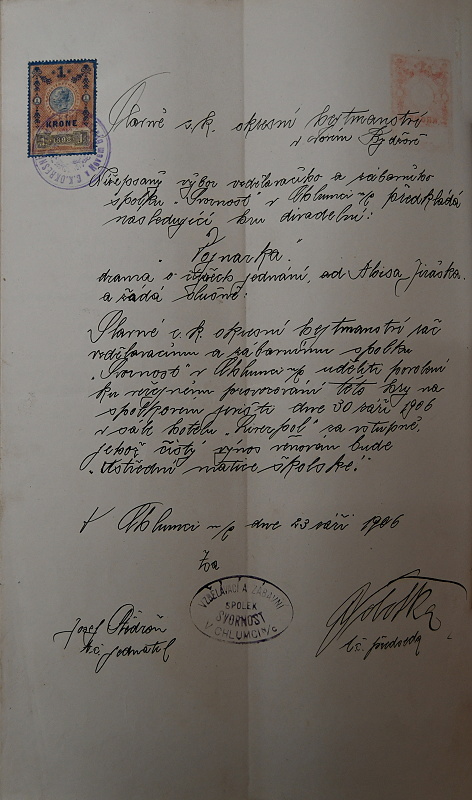 1
KRONE
1898
Slavné c.k. okresní hejtmanství
v Novém Bydžově
Nížepsaný výbor vzdělavacího a zábavního
spolku "Svornost" v Chlumci n/p předkládá
následující hru divadelní:
"Vojnarka"
drama o čtyřech jednání, od Aloisa Jiráska
a žádá slušně:
Slavné c.k. okresní hejtmanství rač
vzdělavacímu a zábavnímu spolku
"Svornost" v Chlumci n/p uděliti povolení
ku veřejnému provozování této hry na
spolkovém jevišti dne 30 září 1906
v sále hotelu "Liverpol" za vstupné
jehož čistý výnos věnován bude
"Ústřední matice školské."
V Chlumci n/p dne 23 září 1906
Za
VZDĚLÁVACÍ A ZÁBAVNÍ
SPOLEK
SVORNOST
V CHLUMCI n/c
Josef
t.č. jednatel
t.č. předseda